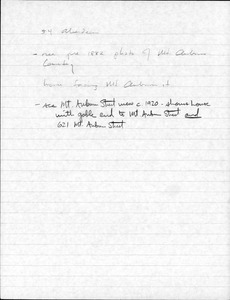 84 Aberdeen
- see pre 1882 photo of Mt. Auburn
Cemetery
house facing Mt Auburn st.
- see Mt. Auburn Street view c. 1920 - shows house
with gable end to Mt Auburn Street and
621 Mt. Auburn Street